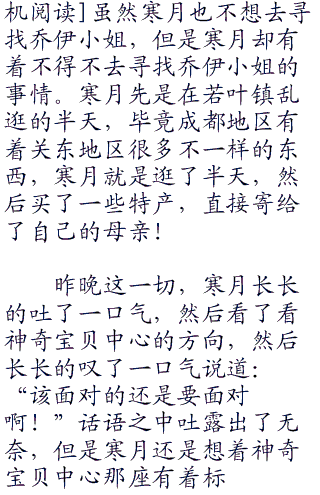 机阅读]虽然寒月也不想去寻
找乔伊小姐，但是寒月却有
着不得不去寻找乔伊小姐的
事情。寒月先是在若叶镇乱
逛的半天，毕竟成都地区有
着关东地区很多不一样的东
西，寒月就是逛了半天，然
后买了一些特产，直接寄给
了自己的母亲！
昨晚这一切，寒月长长
的吐了一口气，然后看了看
神奇宝贝中心的方向，然后
长长的叹了一口气说道：
“该面对的还是要面对
啊！”话语之中吐露出了无
奈，但是寒月还是想着神奇
宝贝中心那座有着标